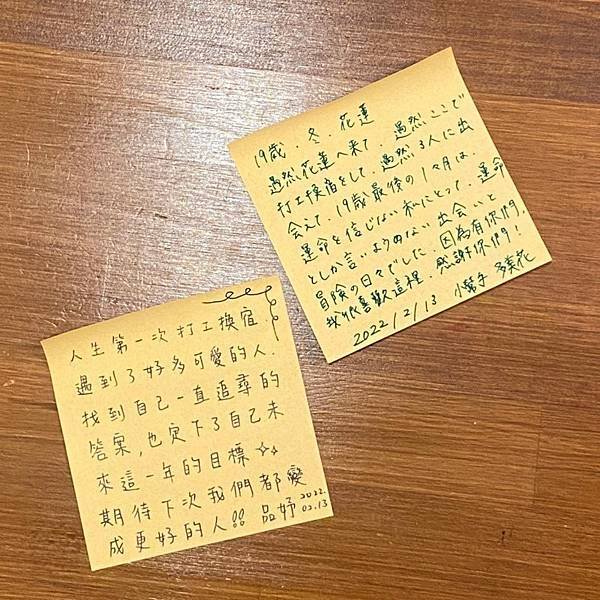 人生第一次打工換宿.
遇到了好多可愛的人.
找到自己一直追尋的
答案,也定下了自己未
來這一年的目標
期待下次我們都變
成更好的人!! 品妤 2022.
02.13
19歲.冬.花蓮
過然花蓮へ来て、過然ここで
打工換宿をして、過然3人に出
会えて、19歳最後の1ヶ月は、
運命を信じない私にとって、運命
としか言いようのない出会いと
冒険の日々でした。因為有你們,
我很喜歡這裡,感謝你們!
2022/2/13 小幫手 多美花